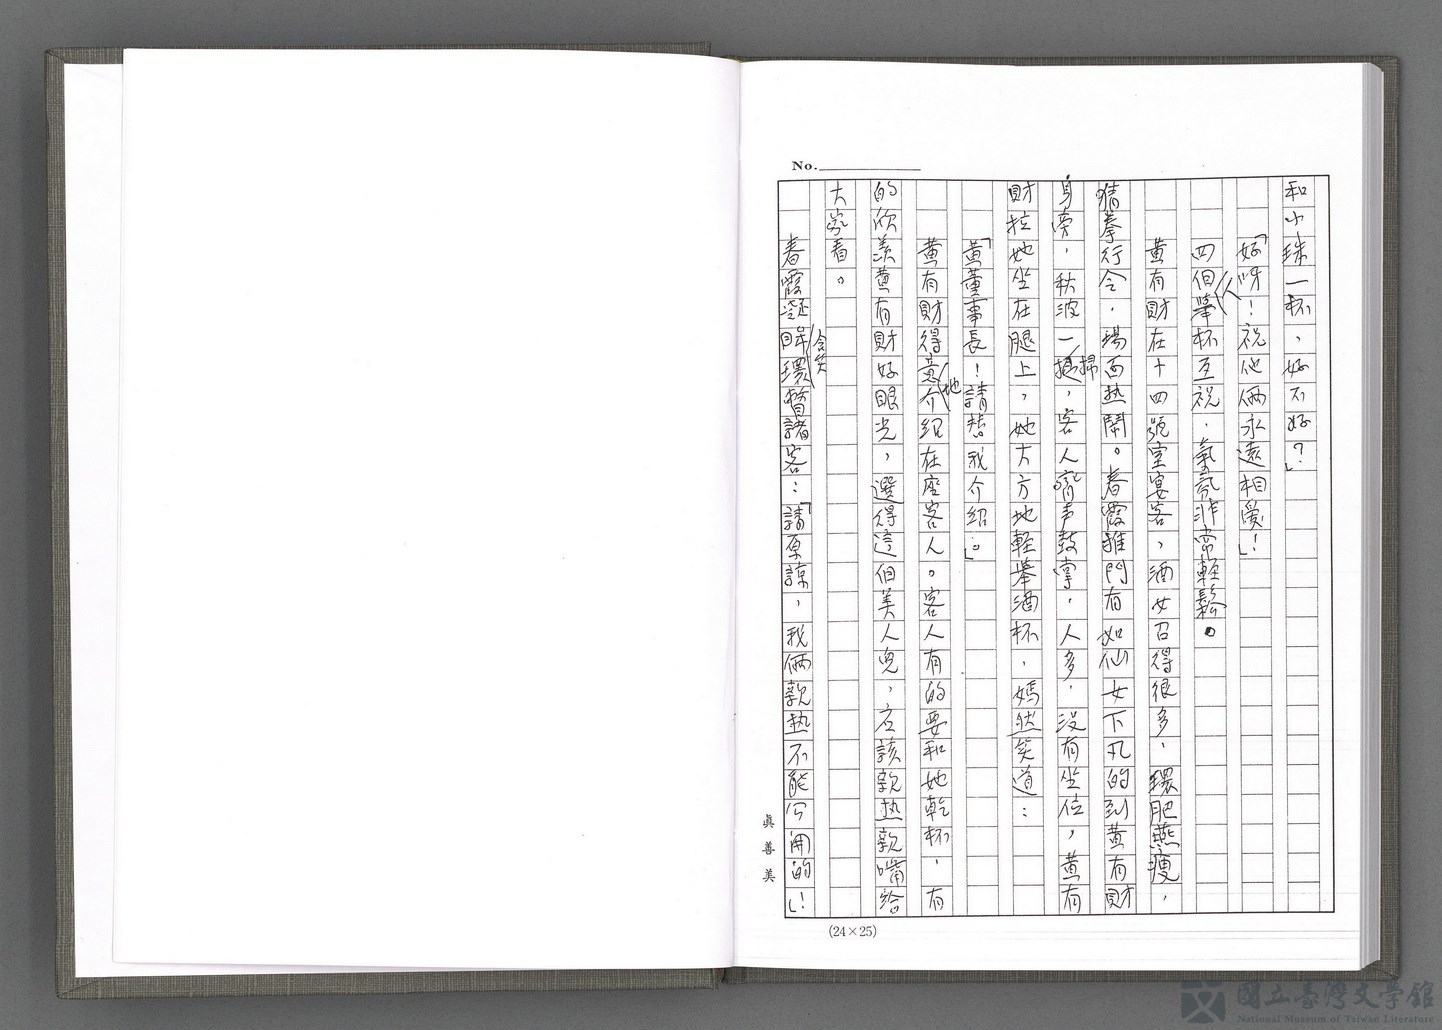 No.
和小珠一杯，好不好？」
「好呀！祝他倆永遠相愛！」
四個人舉杯互祝，氣氛非常輕鬆。
黃有財在十四號室宴客，酒女召得很多，環肥燕瘦，
猜拳行令，場面熱鬧。春霞推門有如仙女下凡的到黃有財
身旁，秋波一掃，客人齊声鼓掌，人多，没有坐位，黃有
財拉她坐在腿上，她大方地輕舉酒杯，嫣然笑道：
「黃董事長！請替我介紹。」
黃有財得意地介紹在座客人。客人有的要和她乾杯，有
的欣羨黃有財好眼光，選得這個美人兒，应該親热親嘴給
大家看。
春霞凝眸含笑環瞥諸客：「請原諒，我倆親热不能公開的！」
眞善美
(24×25)
國立臺灣文學館
National Museum of Taiwan Literature